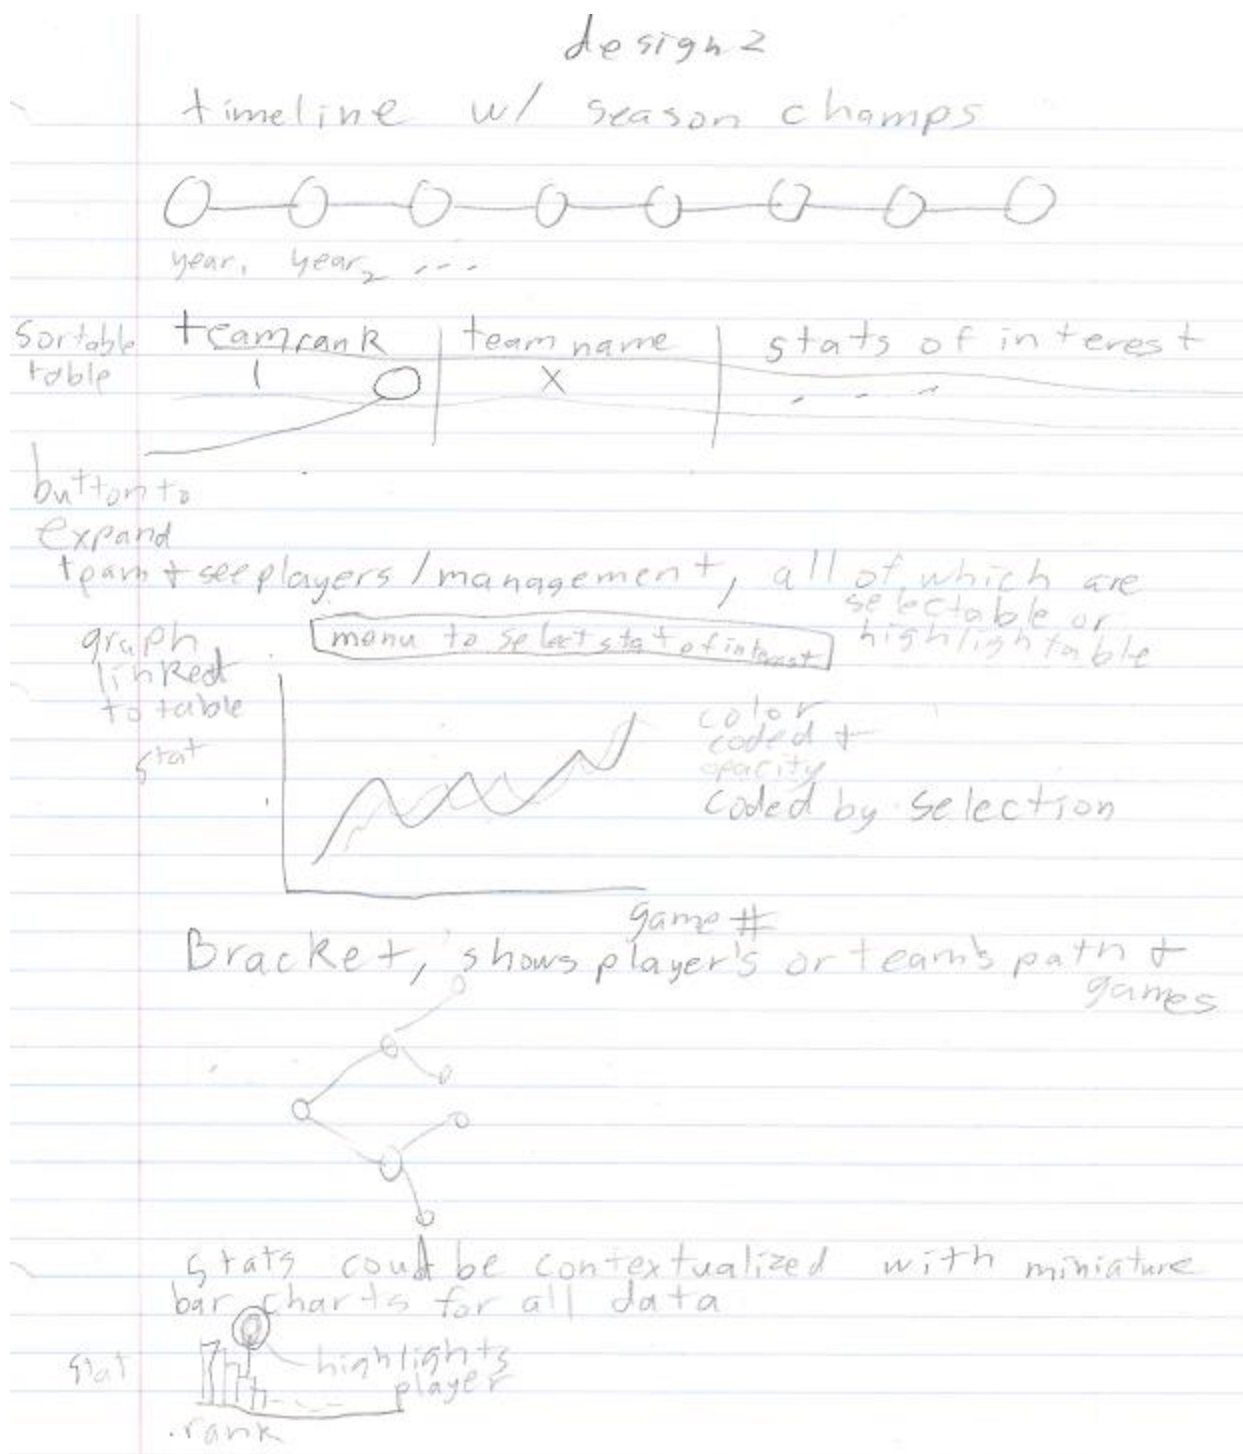 design 2
timeline w/ season champs
year1 year2 ...
sortable table
team rank | team name | stats of interest
1 X - - -
button to
expand
team + see players / management, all of which are
selectable or
highlightable
menu to select stat of interest
graph
linked
to table
stat
color
coded +
opacity
coded by selection
game #
Bracket, shows player's or team's path +
games
stats could be contextualized with miniature
bar charts for all data
highlights
player
stat
rank